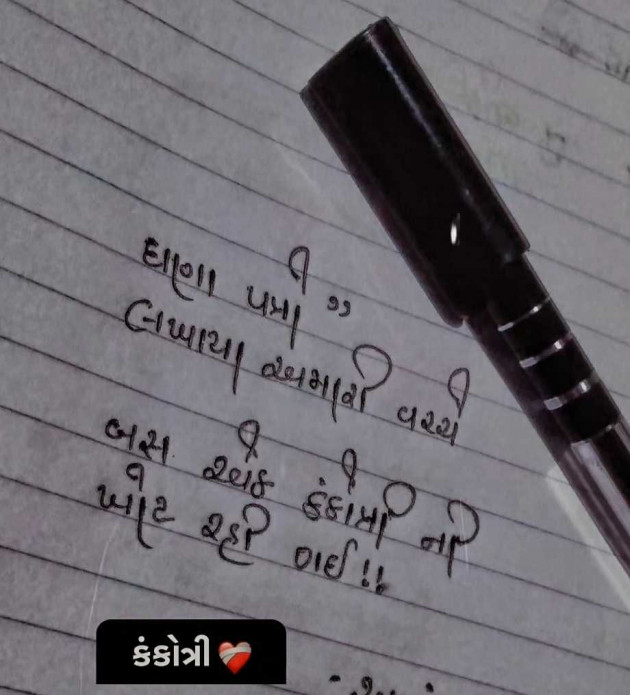 ઘણા પત્રો ”
લખાયા અમારી વચ્ચે
બસ એક કંકોત્રી ની
ખોટ રહી ગઈ !!
કંકોત્રી ❤️‍🩹